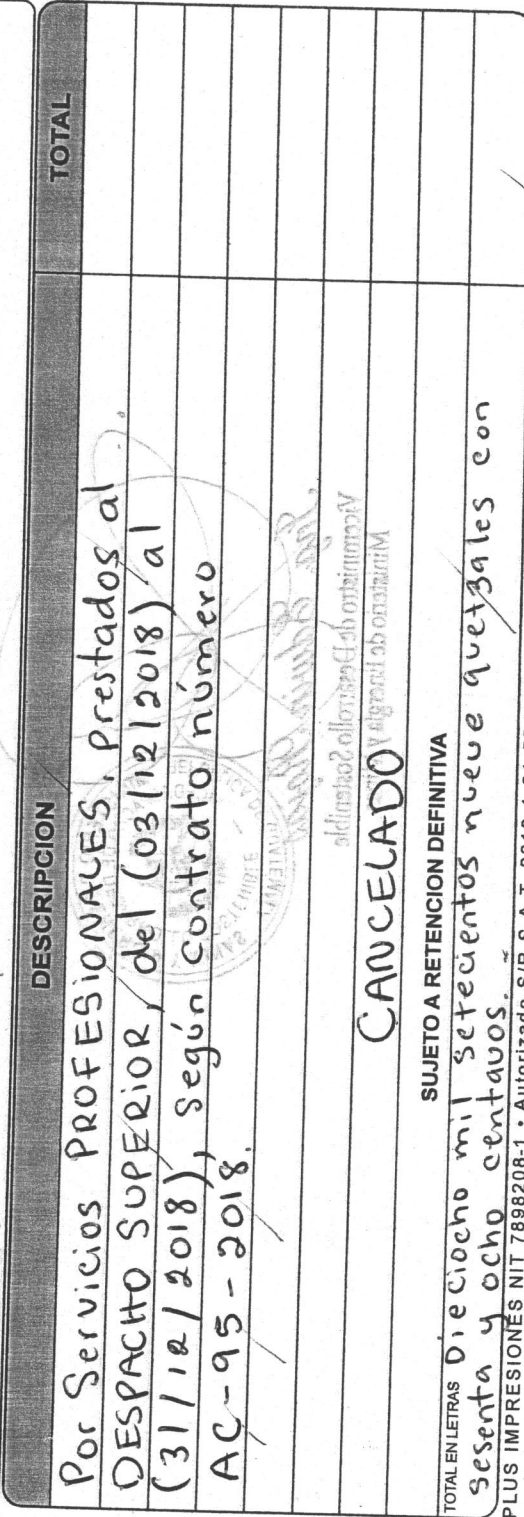 DESCRIPCION TOTAL
Por Servicios PROFESIONALES, Prestados al
DESPACHO SUPERIOR, del (03/12/2018) al
(31/12/2018), según contrato número
AC-95-2018.
Viceministro de Desarrollo Sostenible
Ministerio de Energía y
CANCELADO
SUJETO A RETENCION DEFINITIVA
TOTAL EN LETRAS Dieciocho mil setecientos nueve quetzales con
sesenta y ocho centavos.
PLUS IMPRESIONES NIT 7898208-1 • Autorizado S/R. S.A.T.